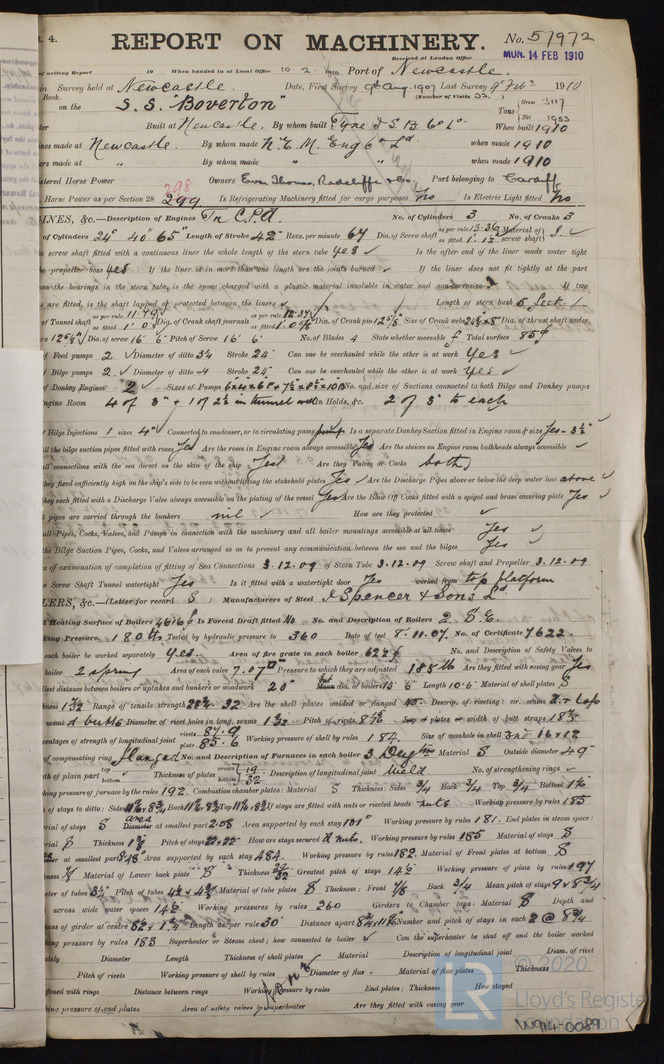 t. 4.
REPORT ON MACHINERY.
No. 57972
Received at London Office
MON. 14 FEB 1910
of writing Report 19 When handed in at Local Office 10. 2. 1910 Port of Newcastle.
in Survey held at Newcastle. Date, First Survey 9th Aug. 1907 Last Survey 9th Feb 1910
Book. (Number of Visits 33.)
on the S.S. "Boverton" Tons Gross 3117 Net 1953
Built at Newcastle. By whom built Tyne I S B Co Ld. When built 1910
nes made at Newcastle. By whom made N. E. M. Eng Co Ld when made 1910
ers made at " By whom made " when made 1910
stered Horse Power Owners Evan Thomas, Radcliffe & Co. Port belonging to Cardiff
298
Horse Power as per Section 28 299 Is Refrigerating Machinery fitted for cargo purposes No Is Electric Light fitted No
INES, &c.—Description of Engines Tri C.S.A. No. of Cylinders 3 No. of Cranks 3
of Cylinders 24" 40" 65" Length of Stroke 42" Revs. per minute 67 Dia. of Screw shaft as per rule 13.36 Material of screw shaft
e screw shaft fitted with a continuous liner the whole length of the stern tube yes Is the after end of the liner made water tight
he propeller boss yes If the liner is in more than one length are the joints burned If the liner does not fit tightly at the part
een the bearings in the stern tube, is the space charged with a plastic material insoluble in water and non-corrosive If two
s are fitted, is the shaft lapped or protected between the liners Length of stern bush 5 feet.
of Tunnel shaft as per rule 11.79 as fitted Dia. of Crank shaft journals as per rule 12.37 as fitted Dia. of Crank pin 12 5/8 Size of Crank webs Dia. of thrust shaft under
rs 12 5/8 Dia. of screw 16' 6" Pitch of Screw 16' 6" No. of Blades 4 State whether moveable Total surface 85
f Feed pumps 2 Diameter of ditto 3 3/4 Stroke 24" Can one be overhauled while the other is at work Yes
f Bilge pumps 2 Diameter of ditto 4 Stroke 24" Can one be overhauled while the other is at work Yes
of Donkey Engines 2 Sizes of Pumps No. and size of Suctions connected to both Bilge and Donkey pumps
ngine Room 4 of 3" + 1 of 2 1/2 in tunnel well In Holds, &c. 2 of 3" to each
f Bilge Injections 1 sizes 4" Connected to condenser, or to circulating pump pump Is a separate Donkey Suction fitted in Engine room & size Yes - 3 1/2"
ll the bilge suction pipes fitted with roses Yes Are the roses in Engine room always accessible Yes Are the sluices on Engine room bulkheads always accessible
all connections with the sea direct on the skin of the ship Yes Are they Valves or Cocks both
hey fixed sufficiently high on the ship's side to be seen without lifting the stokehold plates Yes Are the Discharge Pipes above or below the deep water line above
hey each fitted with a Discharge Valve always accessible on the plating of the vessel Yes Are the Blow Off Cocks fitted with a spigot and brass covering plate Yes
pipes are carried through the bunkers nil How are they protected
all Pipes, Cocks, Valves, and Pumps in connection with the machinery and all boiler mountings accessible at all times Yes
the Bilge Suction Pipes, Cocks, and Valves arranged so as to prevent any communication between the sea and the bilges Yes
s of examination of completion of fitting of Sea Connections 3.12.09 of Stern Tube 3.12.09 Screw shaft and Propeller 3.12.09
e Screw Shaft Tunnel watertight Yes Is it fitted with a watertight door Yes worked from top platform
LERS, &c.—(Letter for record S) Manufacturers of Steel J Spencer & Sons Ld
l Heating Surface of Boilers 4616 Is Forced Draft fitted No No. and Description of Boilers 2. S.E.
king Pressure 180 lbs Tested by hydraulic pressure to 360 Date of test 8.11.07. No. of Certificate 7622.
each boiler be worked separately Yes. Area of fire grate in each boiler 62 No. and Description of Safety Valves to
boiler 2 spring Area of each valve 7.07 Pressure to which they are adjusted 185 lb Are they fitted with easing gear Yes
llest distance between boilers or uptakes and bunkers or woodwork 20" dia. of boilers 15' 6" Length 10.6" Material of shell plates S
kness 1 3/32 Range of tensile strength 28 3/4 - 32 Are the shell plates welded or flanged no. Descrip. of riveting: cir. seams lap
seams d butts Diameter of rivet holes in long. seams 1 3/32 Pitch of rivets Lap of plates or width of butt straps
centages of strength of longitudinal joint rivets 87.9 plate 85.6 Working pressure of shell by rules 184. Size of manhole in shell 16 x 12
of compensating ring flanged No. and Description of Furnaces in each boiler 3 Deighton Material S Outside diameter 49"
th of plain part top bottom Thickness of plates crown bottom 19/32 Description of longitudinal joint Weld No. of strengthening rings
king pressure of furnace by the rules 192. Combustion chamber plates: Material S Thickness: Sides 3/4 Back 3/4 Top 3/4 Bottom
h of stays to ditto: Sides Back Top If stays are fitted with nuts or riveted heads nuts Working pressure by rules 185
rial of stays S area Diameter at smallest part 2.03 Area supported by each stay 101" Working pressure by rules 181. End plates in steam space:
rial S Thickness Pitch of stays 22 x 22 How are stays secured d nuts. Working pressure by rules 185 Material of stays S
er at smallest part Area supported by each stay 484. Working pressure by rules 182. Material of Front plates at bottom S
ness Material of Lower back plate S Thickness Greatest pitch of stays 14 1/2 Working pressure of plate by rules 197
eter of tubes 3 1/4 Pitch of tubes Material of tube plates S Thickness: Front 7/8 Back 3/4 Mean pitch of stays 9 x 8 3/4
across wide water spaces 14 1/2 Working pressures by rules 260 Girders to Chamber tops: Material S Depth and
ness of girder at centre Length as per rule 30" Distance apart Number and pitch of stays in each 2 @ 8 3/4
king pressure by rules 183 Superheater or Steam chest; how connected to boiler Can the superheater be shut off and the boiler worked
ately Diameter Length Thickness of shell plates Material Description of longitudinal joint Diam. of rivet
Pitch of rivets Working pressure of shell by rules Diameter of flue Material of flue plates Thickness
None
ffened with rings Distance between rings Working pressure by rules End plates: Thickness How stayed
ing pressure of end plates Area of safety valves to superheater Are they fitted with easing gear
© 2020
LR
Lloyd's Register
Foundation
W914-0089